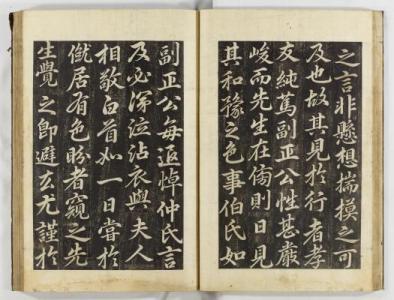 之言非懸想揣摸之可
及也故其見扵行者孝
友純篤副正公性甚嚴
峻而先生在則日見
其和豫之色事伯氏如
副正公每追悼仲氏言
及必涕泣沾衣與夫人
相敬白首如一日嘗扵
僦居有色盼者窺之先
生覺之即避去尤謹扵